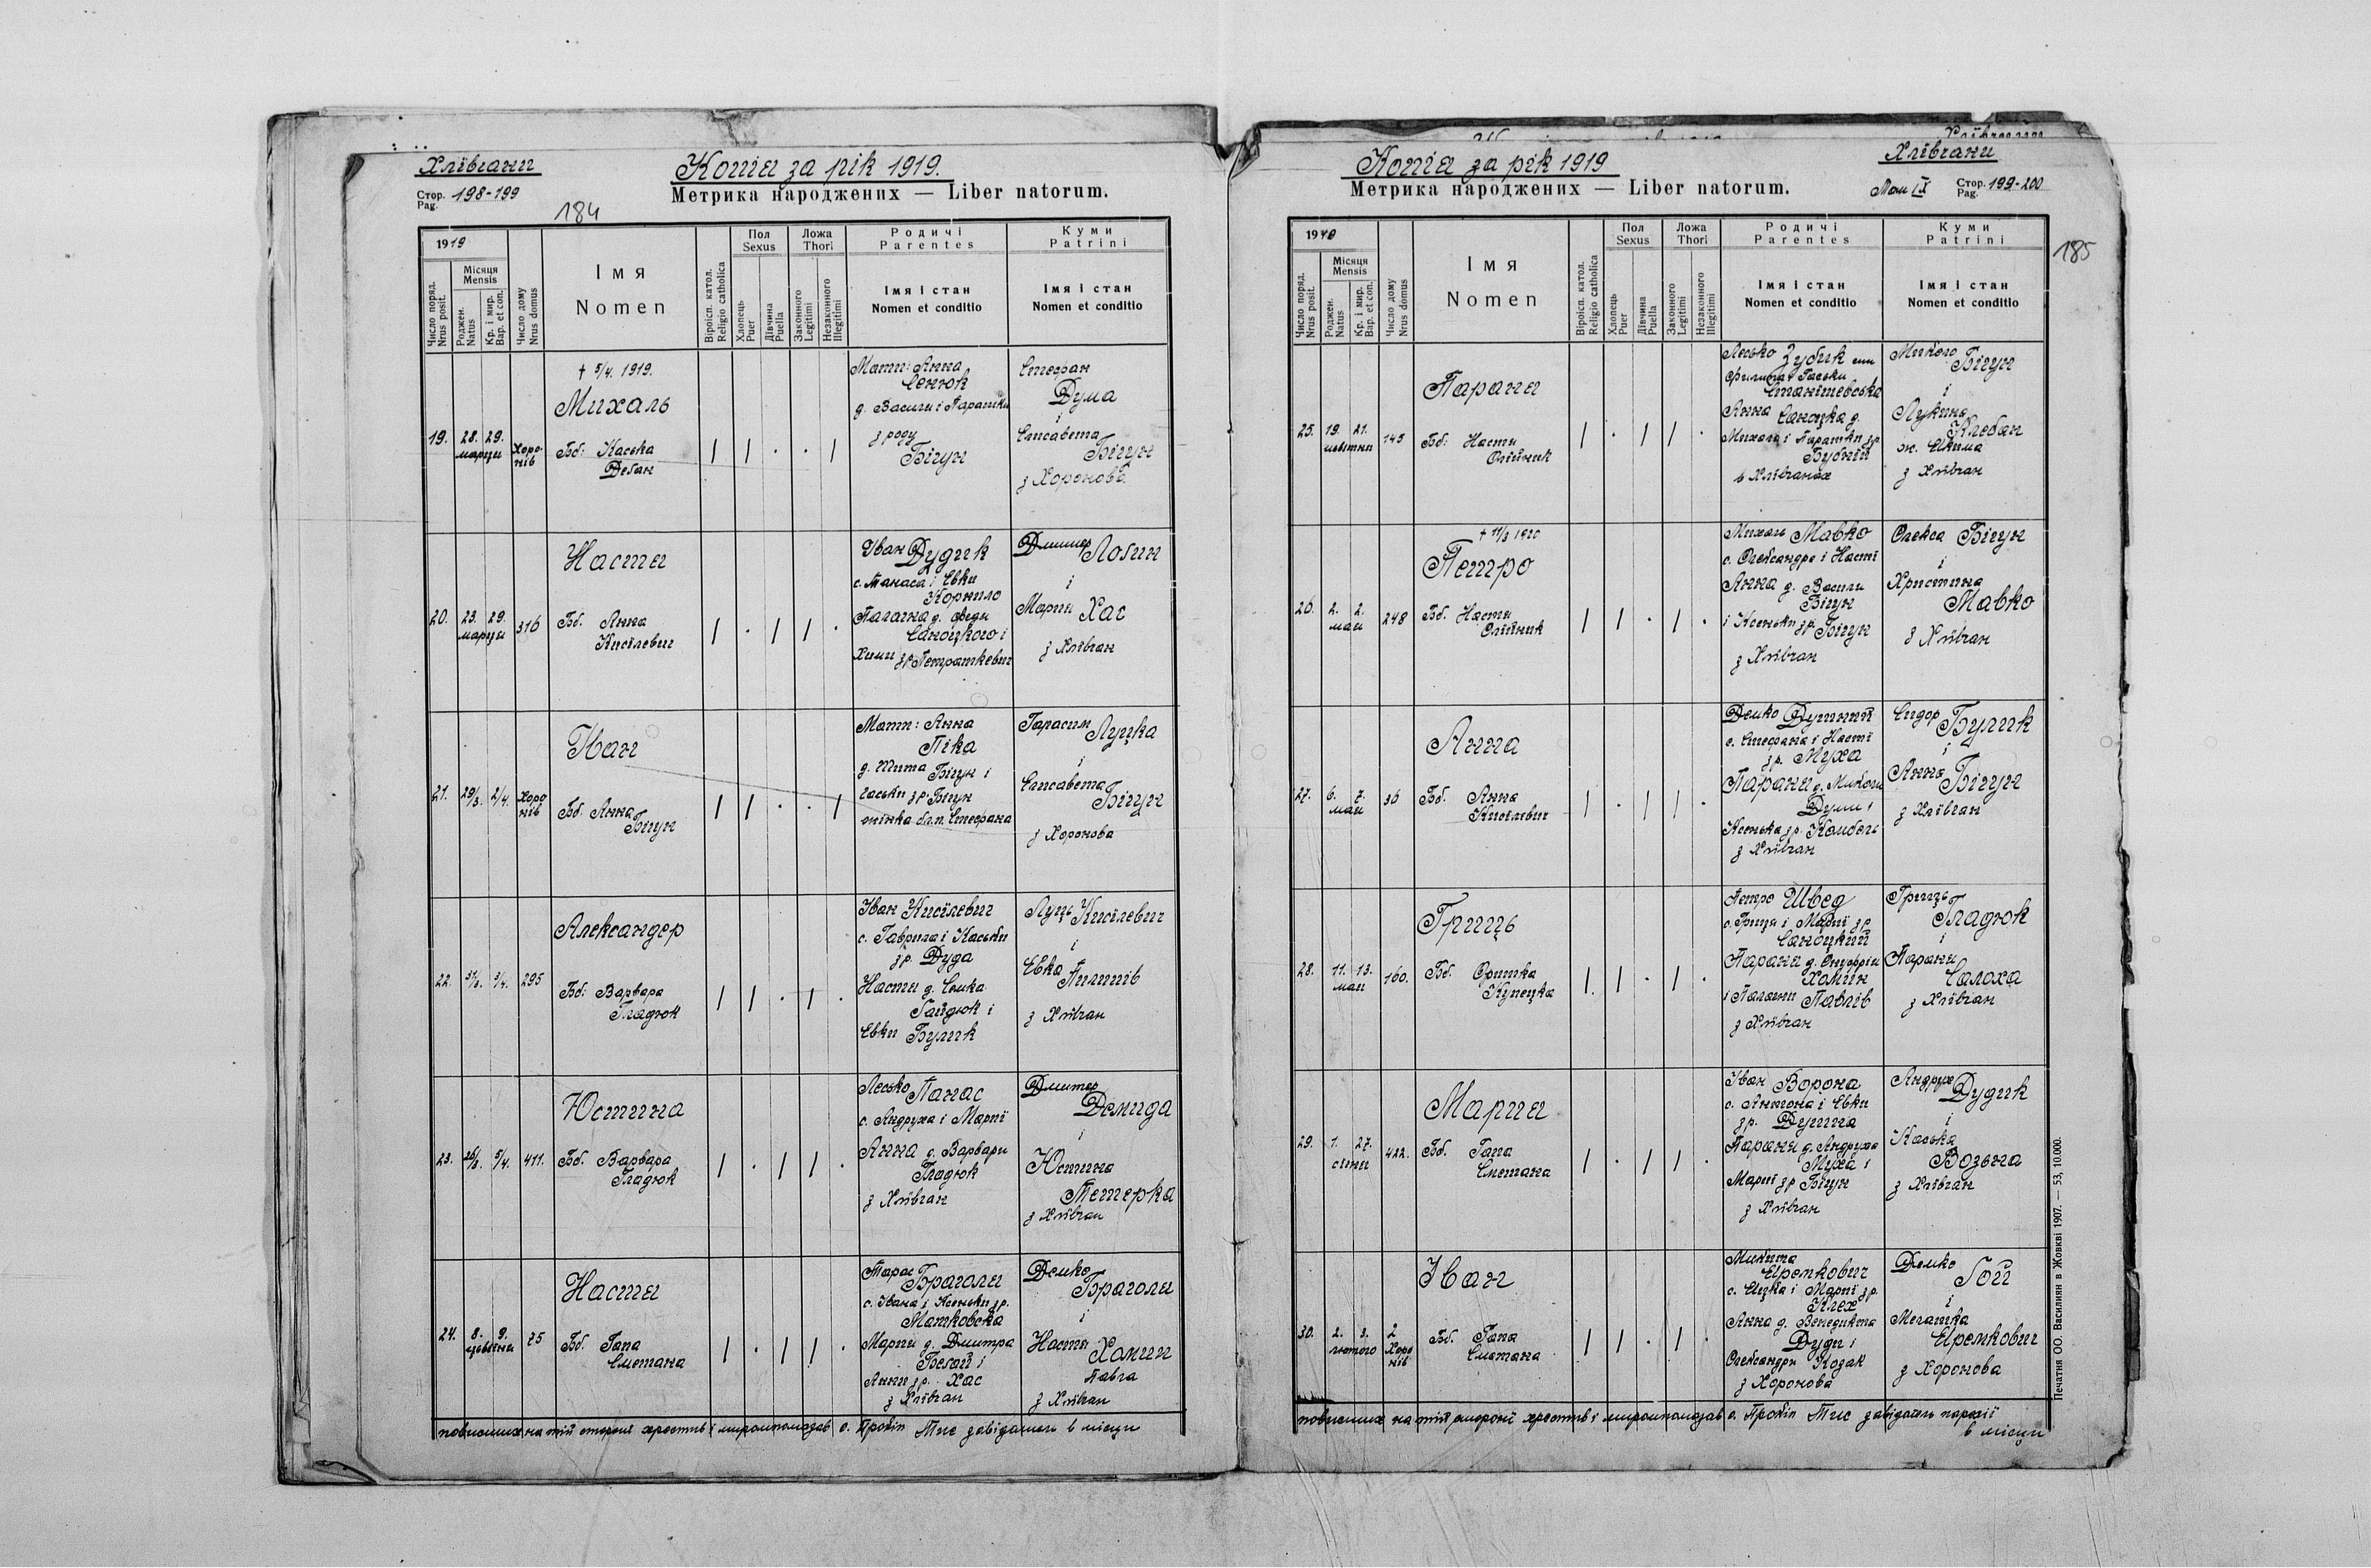 Хлївчани
Копія за рік 1919.
Стор. 198-199
Pag.
Метрика народжених — Liber natorum.
184
1919
Число поряд.
Nrus posit.
Місяця
Mensis
Роджен.
Natus
Кр. і мир.
Bap. et con.
Число дому
Nrus domus
Імя
Nomen
Віроісп. катол.
Religio catholica
Пол
Sexus
Хлопець
Puer
Дівчина
Puella
Ложа
Thori
Законного
Legitimi
Незаконного
Illegitimi
Родичі
Parentes
Імя і стан
Nomen et conditio
Куми
Patrini
Імя і стан
Nomen et conditio
19.
28. 29.
марця
Хоро-
нів
† 5/4. 1919.
Михаль
Бб: Каська
Дебан
Мати: Анна
Сенюк
д. Василя і Парашки
з роду
Бігун
Стефан
Дума
і
Єлисавета
Бігун
з Хоронова
20.
23. 29.
марця
316
Настя
Бб. Анна
Кисїлевич
Іван Дудик
с. Танаса і Євки
Корнило
Палагна д. Федя
Саноцкого і
Хими зр. Петрашкевич
Дмитер Лобин
і
Мария Хас
з Хлївчан
21.
29/3. 2/4.
Хоро
нів
Іван
Бб. Анна
Бігун
Мати: Анна
Піка
д. Тита Бігун і
Гаськи з р. Бігун
жінка бл.п. Стефана
Гарасим
Луцка
і
Єлисавета
Бігун
з Хоронова
22.
31/3. 3/4.
295
Александер
Бб: Варвара
Гладюк
Іван Кисїлевич
с. Гаврила і Каськи
зр. Дуда
Настя д. Семка
Гайдюк і
Євки Булик
Луць Кисїлевич
і
Євка Пилипів
з Хлївчан
23.
26/3. 5/4.
411.
Юстина
Бб. Варвара
Гладюк
Лесько Панас
с. Андруха і Мариї
Анна д. Варвари
Гладюк
з Хлївчан
Дмитер
Демида
і
Юстина
Тетерка
з Хлївчан
24.
8. 9.
цьвітня
25
Настя
Бб. Гапа
Сметана
Тарас Браголя
с. Івана і Ксеньки зр.
Матковска
Мария д. Дмитра
Бегай і
Анни зр. Хас
з Хлївчан
Демко
Браголя
і
Настя Хомин
Павла
з Хлївчан
повисших на тій стороні хрестив і миропомазав о. Прокіп Тис завідатель в місци
Хлївчани
Копія за рік 1919
Том IX Стор. 199-200
Pag.
Метрика народжених — Liber natorum.
185
1919
Число поряд.
Nrus posit.
Місяця
Mensis
Роджен.
Natus
Кр. і мир.
Bap. et con.
Число дому
Nrus domus
Імя
Nomen
Віроісп. катол.
Religio catholica
Пол
Sexus
Хлопець
Puer
Дівчина
Puella
Ложа
Thori
Законного
Legitimi
Незаконного
Illegitimi
Родичі
Parentes
Імя і стан
Nomen et conditio
Куми
Patrini
Імя і стан
Nomen et conditio
25.
19. 21.
цьвітня
145
Параня
Бб: Настя
Олїйник
Лесько Зубик син
Филипа і Гаськи
Анна Саноцка д.
Михала і Парашки зр
в Хлївчанах
Микола Бігун
і
Лукина
Клебан
ж. Якима
з Хлївчан
26.
2. 2.
мая
248
† 11/3 1920
Петро
Бб. Настя
Олїйник
Михаль Мавко
с. Олександра і Настї
Анна д. Василя
Бігун
і Ксеньки зр. Бігун
з Хлївчан
Олекса Бігун
і
Христина
Мавко
з Хлївчан
27.
6. 7.
мая
36
Анна
Бб. Анна
Кисїлевич
Демко Душний
с. Стефана і Настї
зр. Муха
Параня д. Миколи
Думи і
Ксенька зр.
з Хлївчан
Сидор Булик
і
Анна Бігун
з Хлївчан
28.
11. 13.
мая
160.
Гринць
Бб. Оришка
Купецка
Петро Швед
с. Гриця і Мариї зр
Саноцкий
Параня д. Онуфрія
Хомин
і Палагни Павлів
з Хлївчан
Гринць
Гладюк
і
Параня
Салоха
з Хлївчан
29.
1. 27.
сїчня
422.
Мария
Бб. Гапа
Сметана
Іван Ворона
с. Антона і Євки
зр.
Параня д. Андруха
Муха і
Мариї зр Бігун
з Хлївчан
Андрух Дудик
і
Каська
Возьна
з Хлївчан
30.
2. 3.
лютого
2
Хоро
нів
Іван
Бб. Гапа
Сметана
Микита
Яремкович
с. Яцка і Мариї зр.
Клех
Анна д. Венедикта
Дуди і
Олександри Козак
з Хоронова
Демко
Гой
і
Мелашка
Яремкович
з Хоронова
повисших на тій стороні хрестив і миропомазав о. Прокіп Тис завідатель парохії
в місци
Печатня ОО. Василиян в Жовкві 1907. — 53, 10.000.